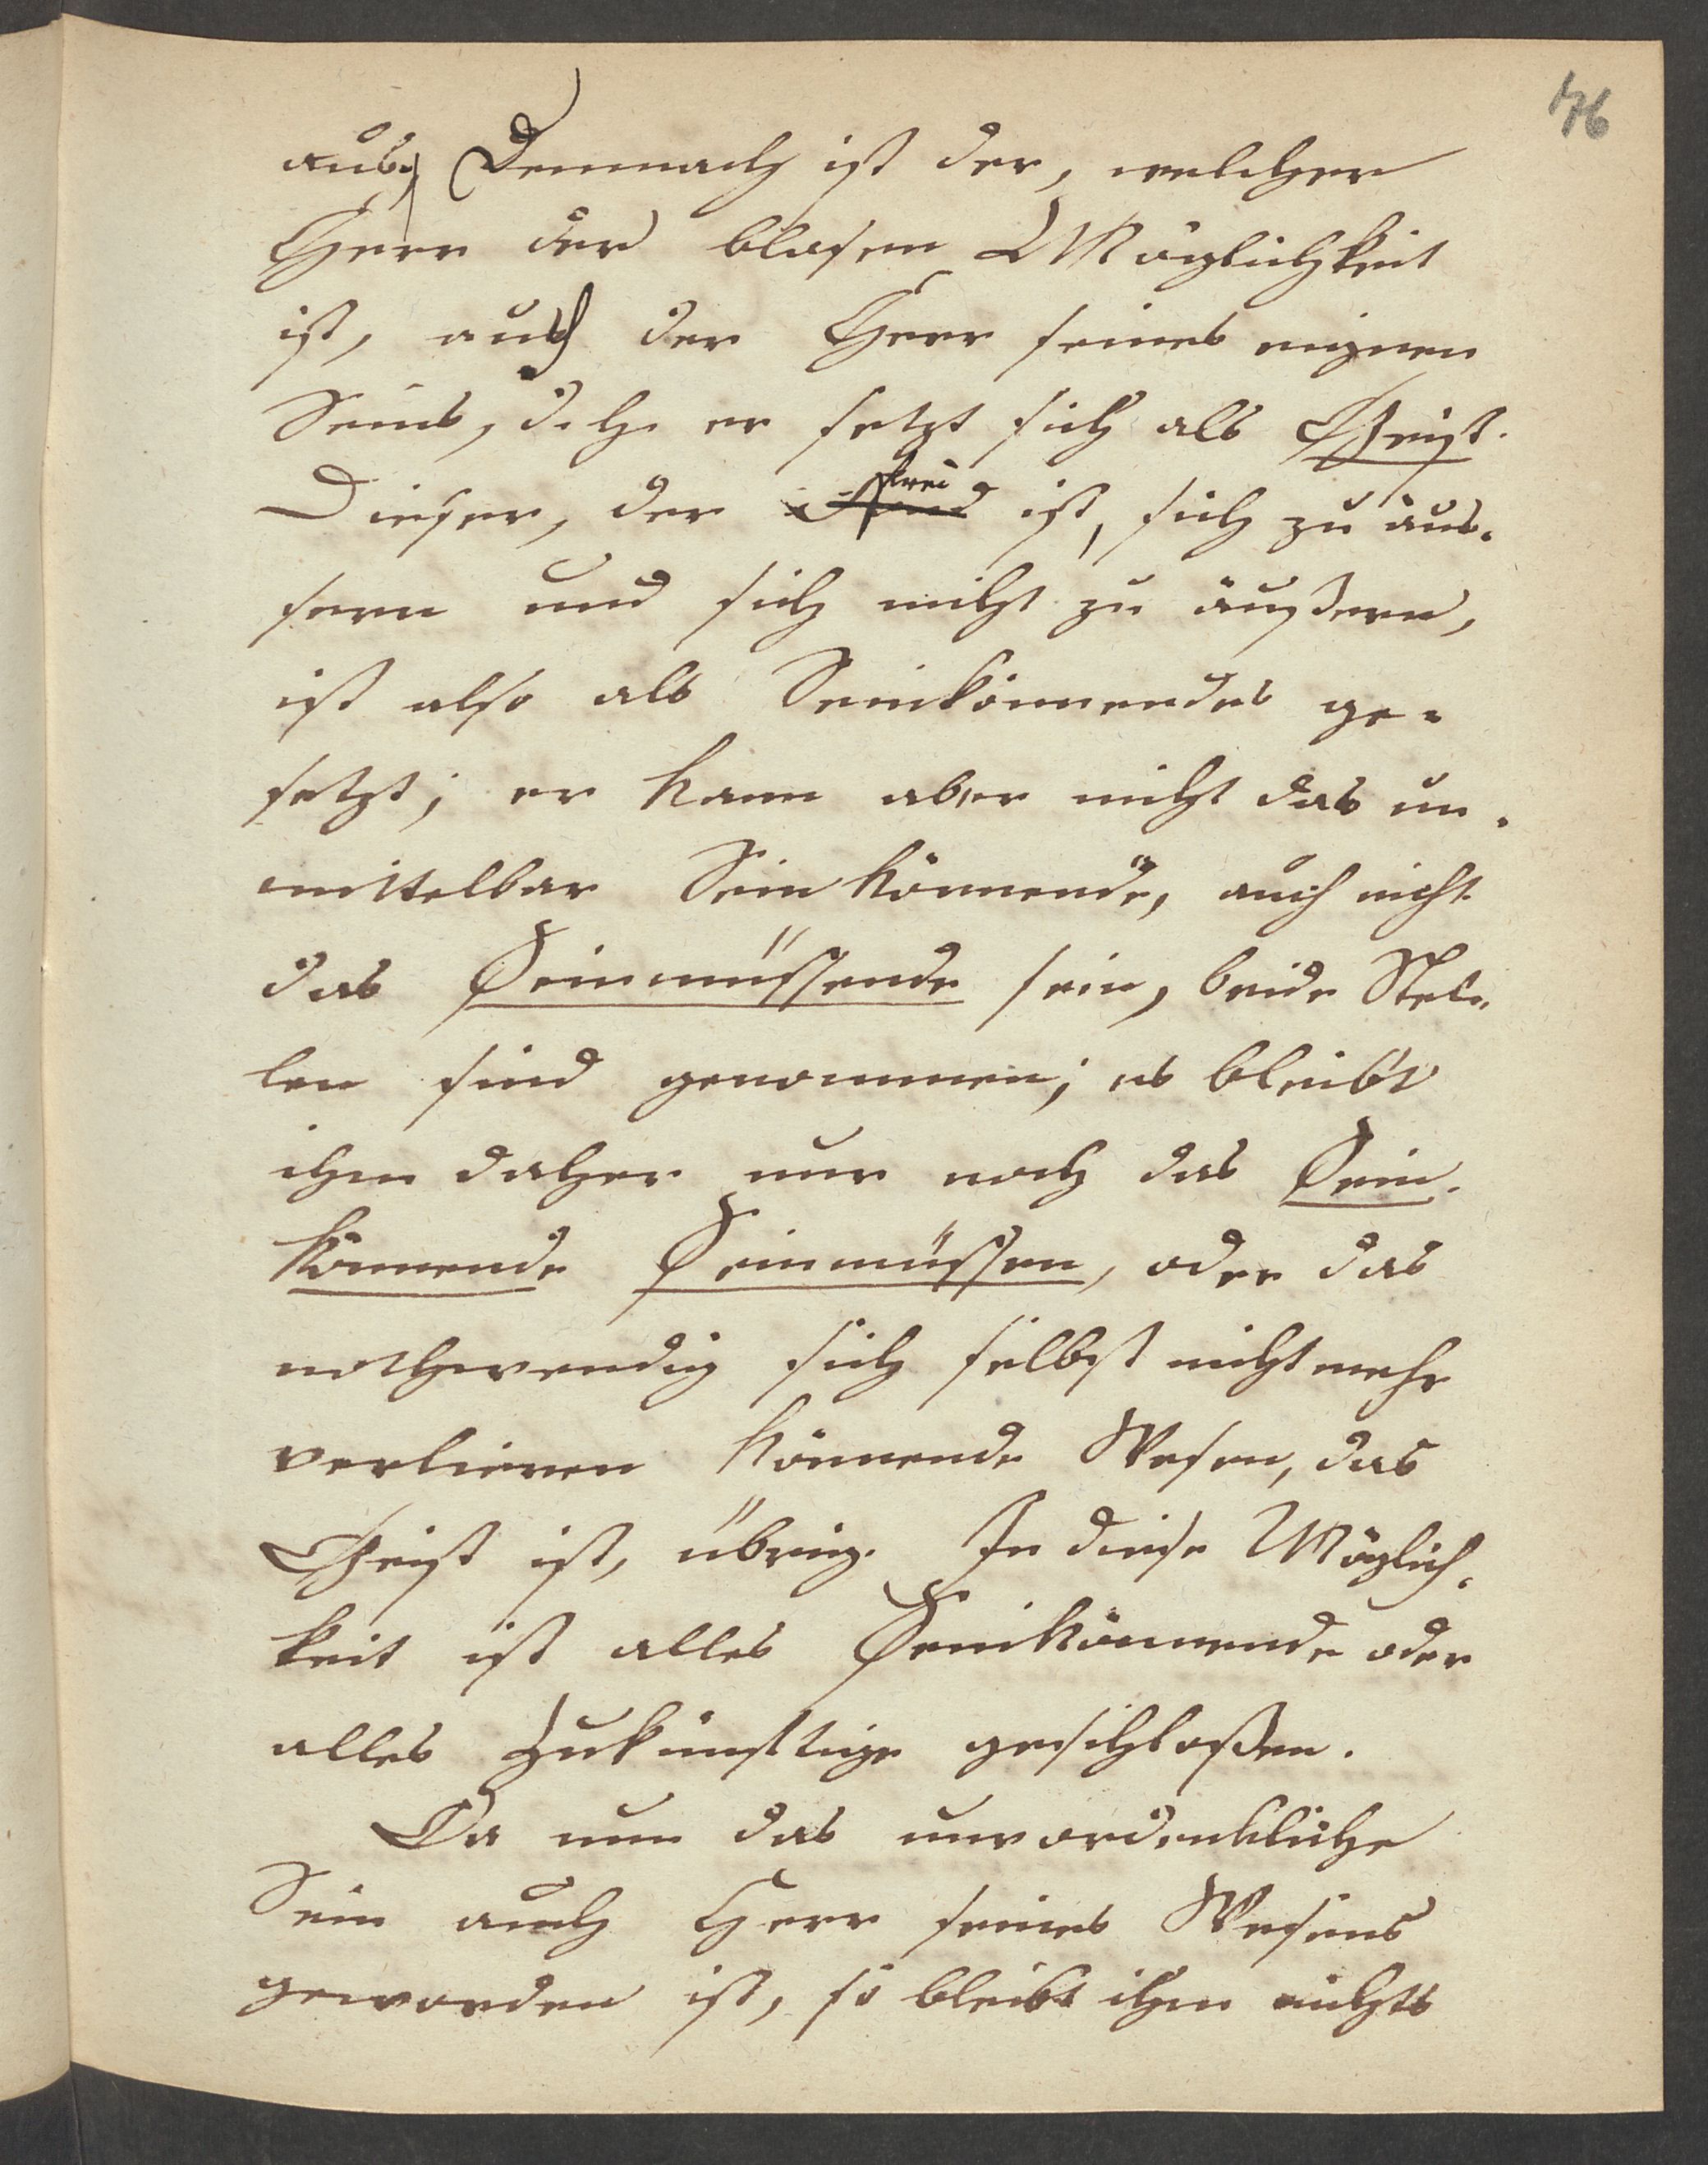 76
aus; Demnach ist der, welcher
Herr der blosen Möglichkeit
ist, auch der Herr seines eignen
Seins, d. h. er setzt sich als Geist.
Dieser, der frei ist, sich zu äus-
sern und sich nicht zu äußern,
ist also als Seinkönnendes ge-
setzt; er kann aber nicht das un-
mittelbar Seinkönnende, auch nicht
das Seinmüssende sein, beide Stel-
len sind genommen; es bleibt
ihm daher nur noch das Sein-
könnende Seinmüssen, oder das
nothwendig sich selbst nicht mehr
verlieren könnende Wesen, das
Geist ist, übrig. In diese Möglich-
keit ist alles Seinkönnende oder
alles Zukünftige geschloßen.
Da nun das unvordenkliche
Sein auch Herr seines Wesens
geworden ist, so bleibt ihm nichts